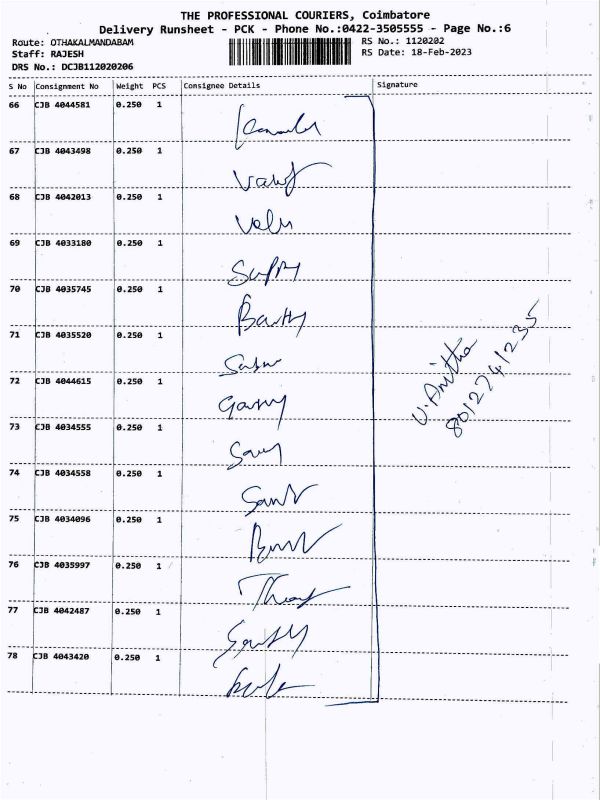 THE PROFESSIONAL COURIERS, Coimbatore
Delivery Runsheet - PCK - Phone No.:0422-3505555 - Page No.:6
Route: OTHAKALMANDABAM
RS No.: 1120202
Staff: RAJESH
RS Date: 18-Feb-2023
DRS No.: DCJB112020206
S No Consignment No Weight PCS Consignee Details Signature
66 CJB 4044581 0.250 1
67 CJB 4043498 0.250 1
68 CJB 4042013 0.250 1
Velu
69 CJB 4033180 0.250 1
70 CJB 4035745 0.250 1
71 CJB 4035520 0.250 1
72 CJB 4044615 0.250 1
73 CJB 4034555 0.250 1
74 CJB 4034558 0.250 1
75 CJB 4034096 0.250 1
76 CJB 4035997 0.250 1
77 CJB 4042487 0.250 1
78 CJB 4043420 0.250 1
U.Anitha
8012741235